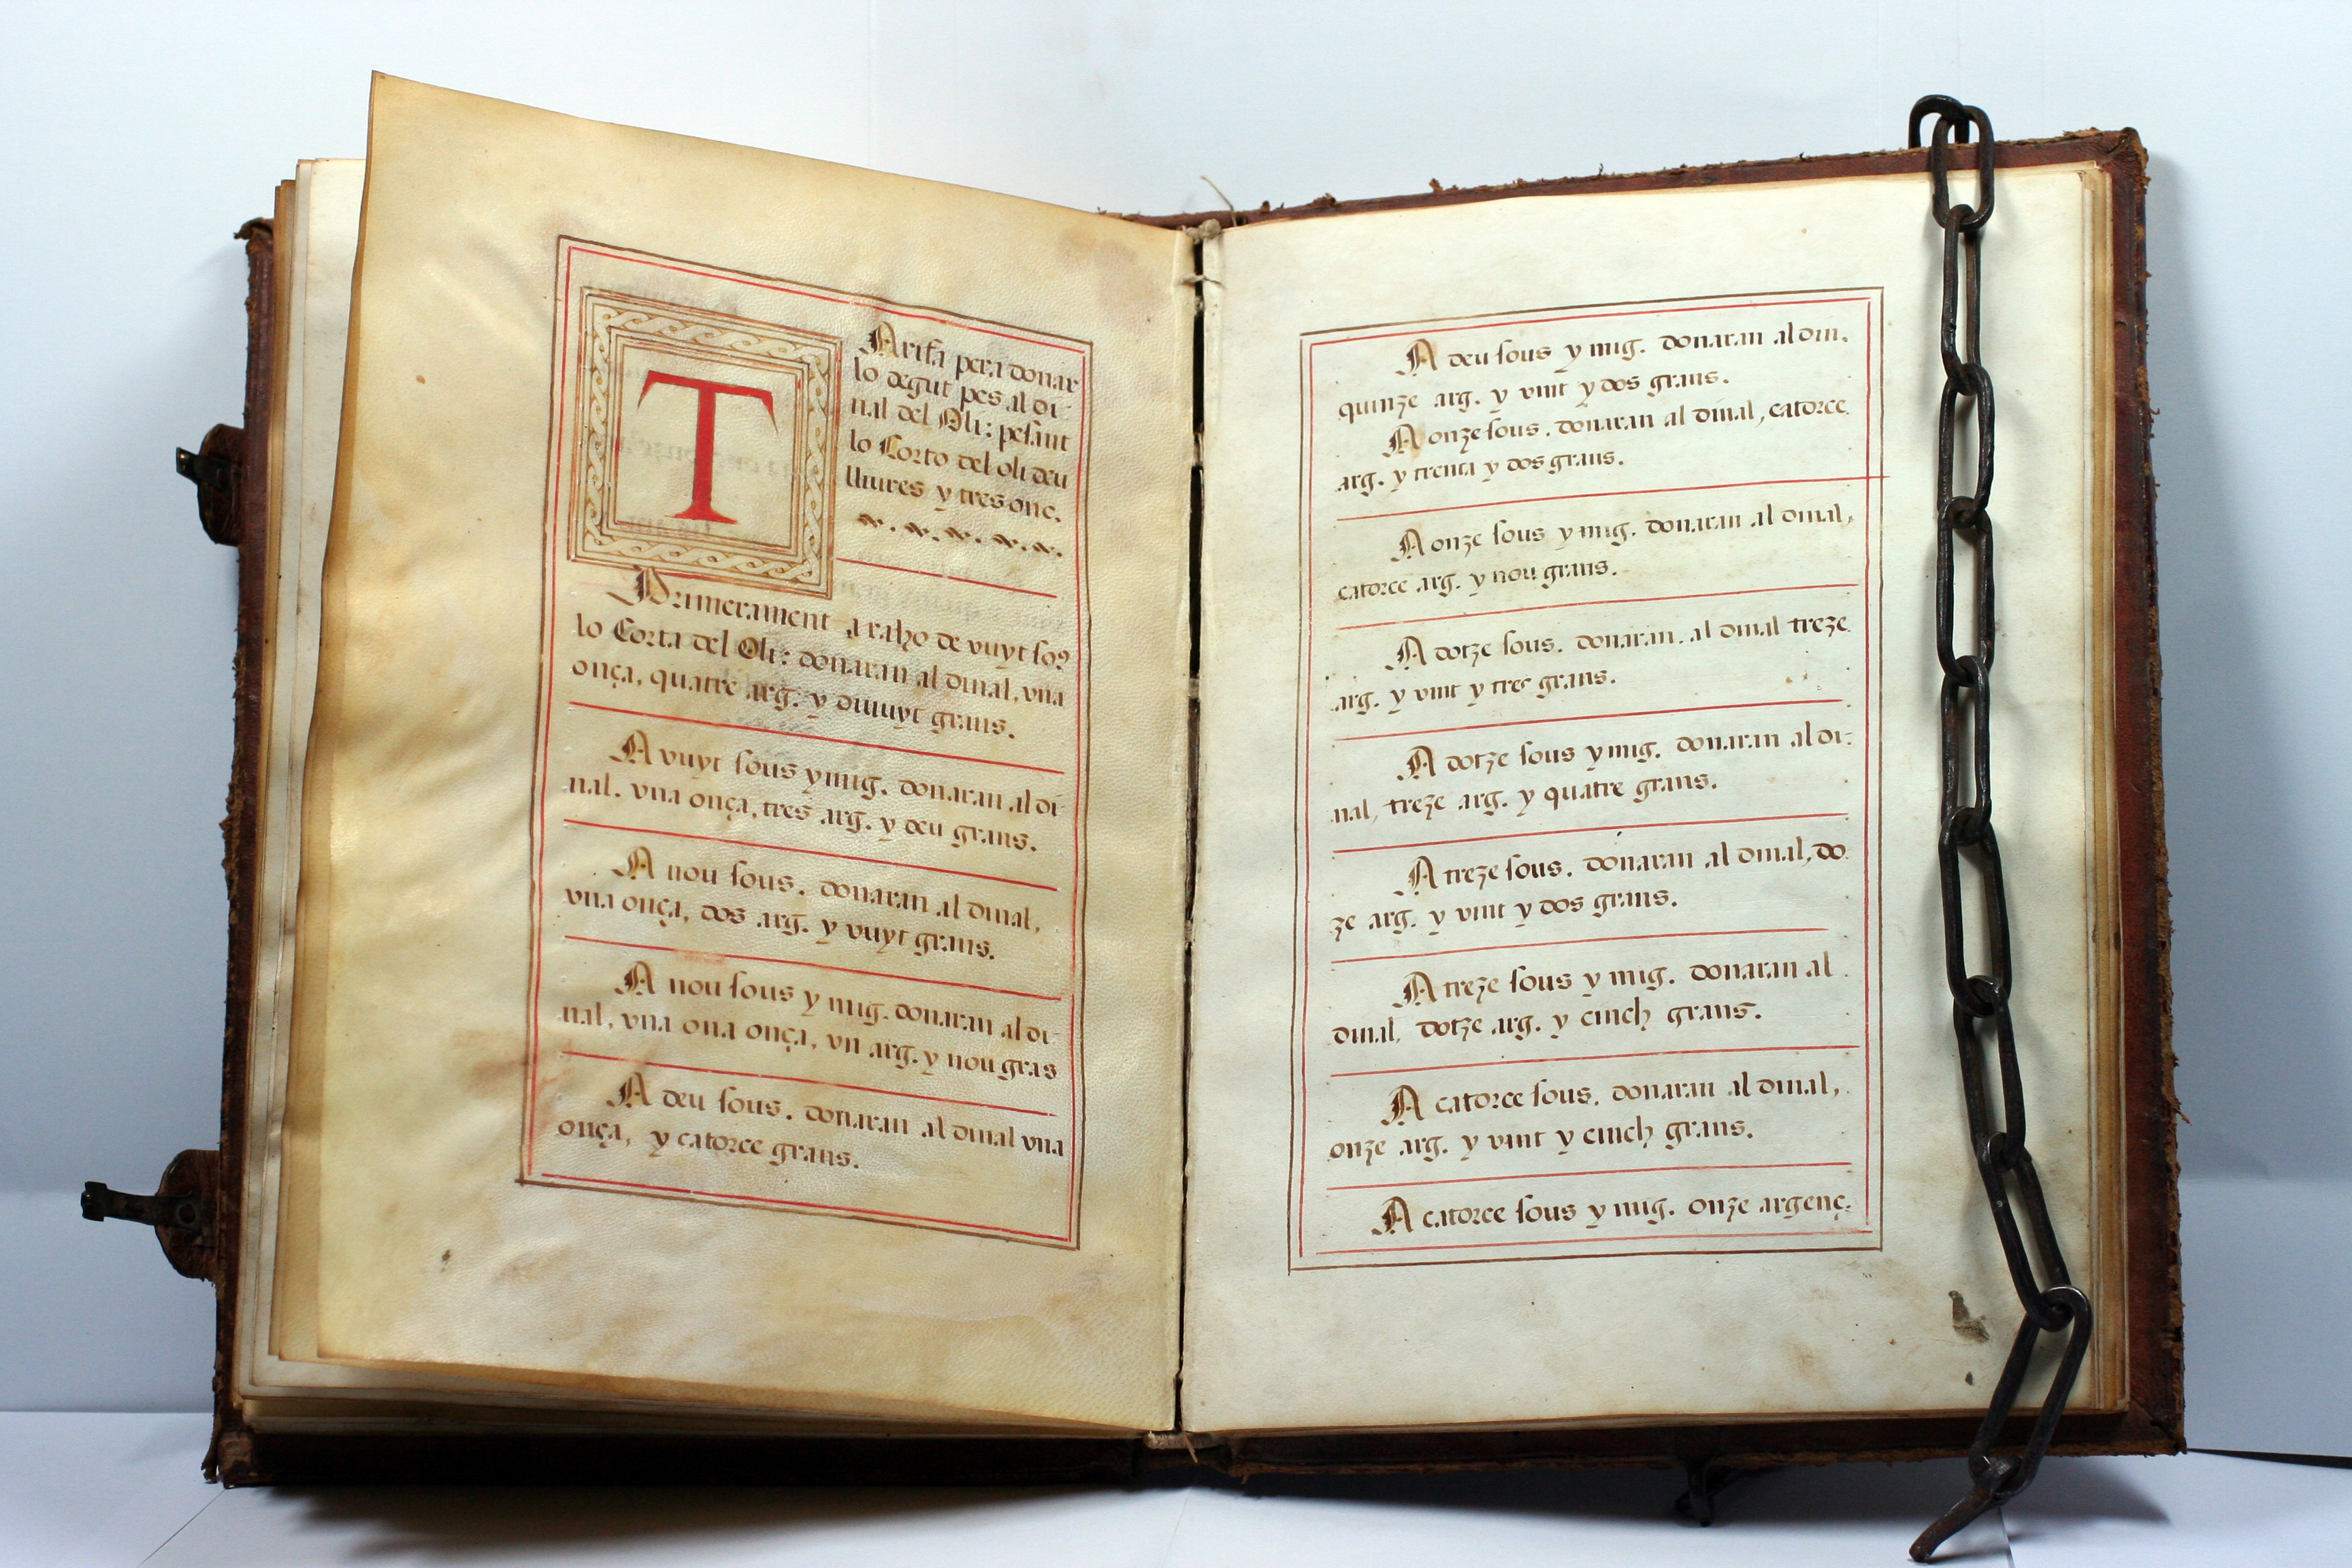 TArifa pera donar
lo degut pes al di-
nal del Oli: pesant
lo Corto del oli deu
lliures y tres onc.
Primerament a raho de vuyt sos
lo Corta del Oli: donaran al dinal, vna
onça, quatre arg. y diuuyt grans.
A vuyt sous y mig. donaran al di-
nal. vna onça, tres arg. y deu grans.
A nou sous. donaran al dinal,
vna onça, dos arg. y vuyt grans.
A nou sous y mig. donaran al di-
nal, vna ona onça, vn arg. y nou gras
A deu sous. donaran al dinal vna
onça, y catorce grans.
A deu sous y mig. donaran al din.
quinze arg. y vint y dos grans.
A onze sous. donaran al dinal, catorce
arg. y trenta y dos grans.
A onze sous y mig. donaran al dinal,
catorce arg. y nou grans.
A dotze sous. donaran. al dinal treze
arg. y vint y tres grans.
A dotze sous y mig. donaran al di-
nal, treze arg. y quatre grans.
A treze sous. donaran al dinal, do
ze arg. y vint y dos grans.
A treze sous y mig. donaran al
dinal, dotze arg. y cinch grans.
A catorce sous. donaran al dinal,
onze arg. y vint y cinch grans.
A catorce sous y mig. onze argenç.